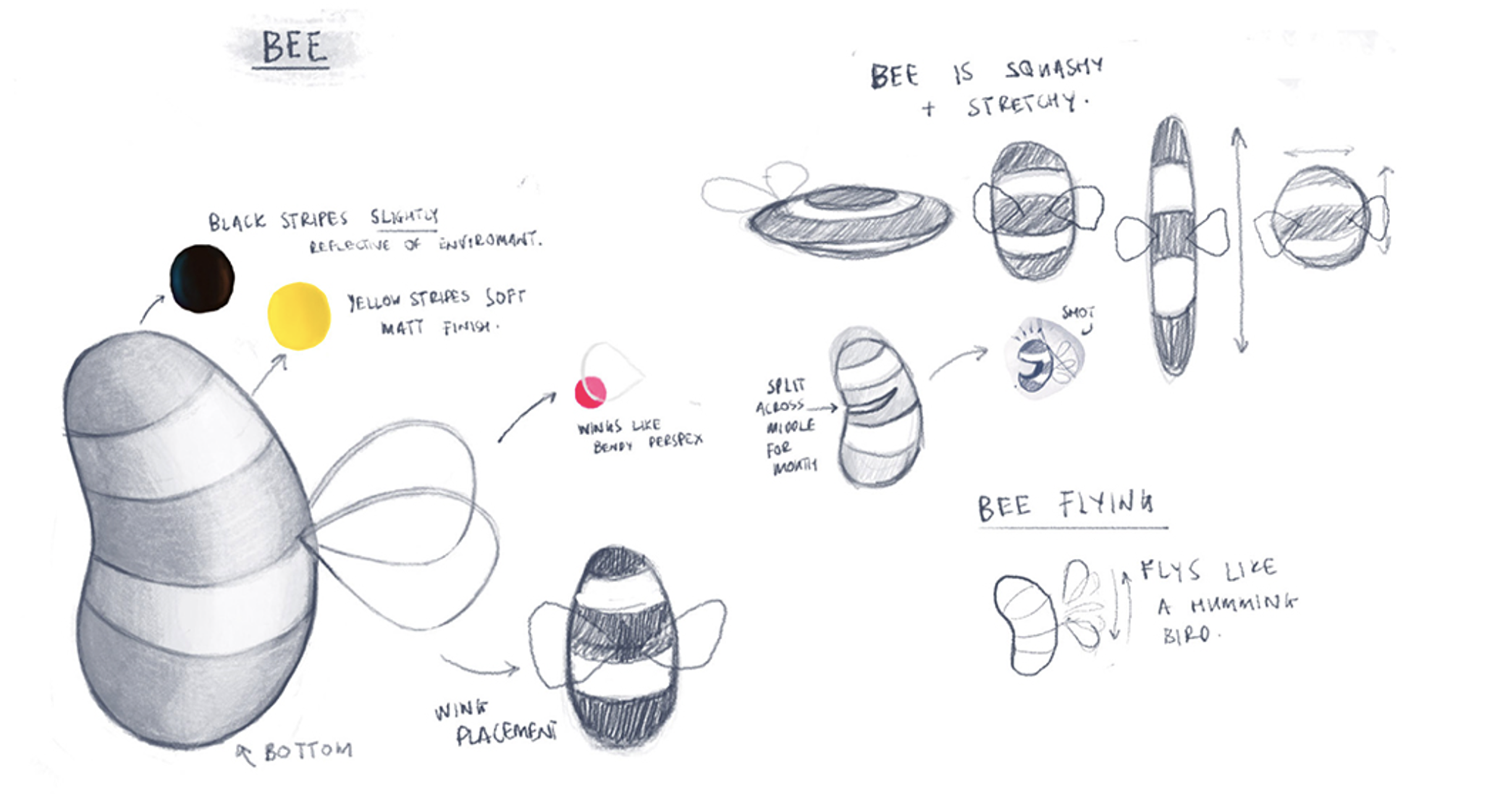 BEE
BLACK STRIPES SLIGHTLY
REFLECTIVE OF ENVIROMANT.
YELLOW STRIPES SOFT
MATT FINISH.
WINGS LIKE
BENDY PERSPEX
WING
PLACEMENT
BOTTOM
BEE IS SQUASHY
+ STRETCHY.
SPLIT
ACROSS
MIDDLE
FOR
MOUTH
SHOT
BEE FLYING
FLYS LIKE
A HUMMING
BIRD.